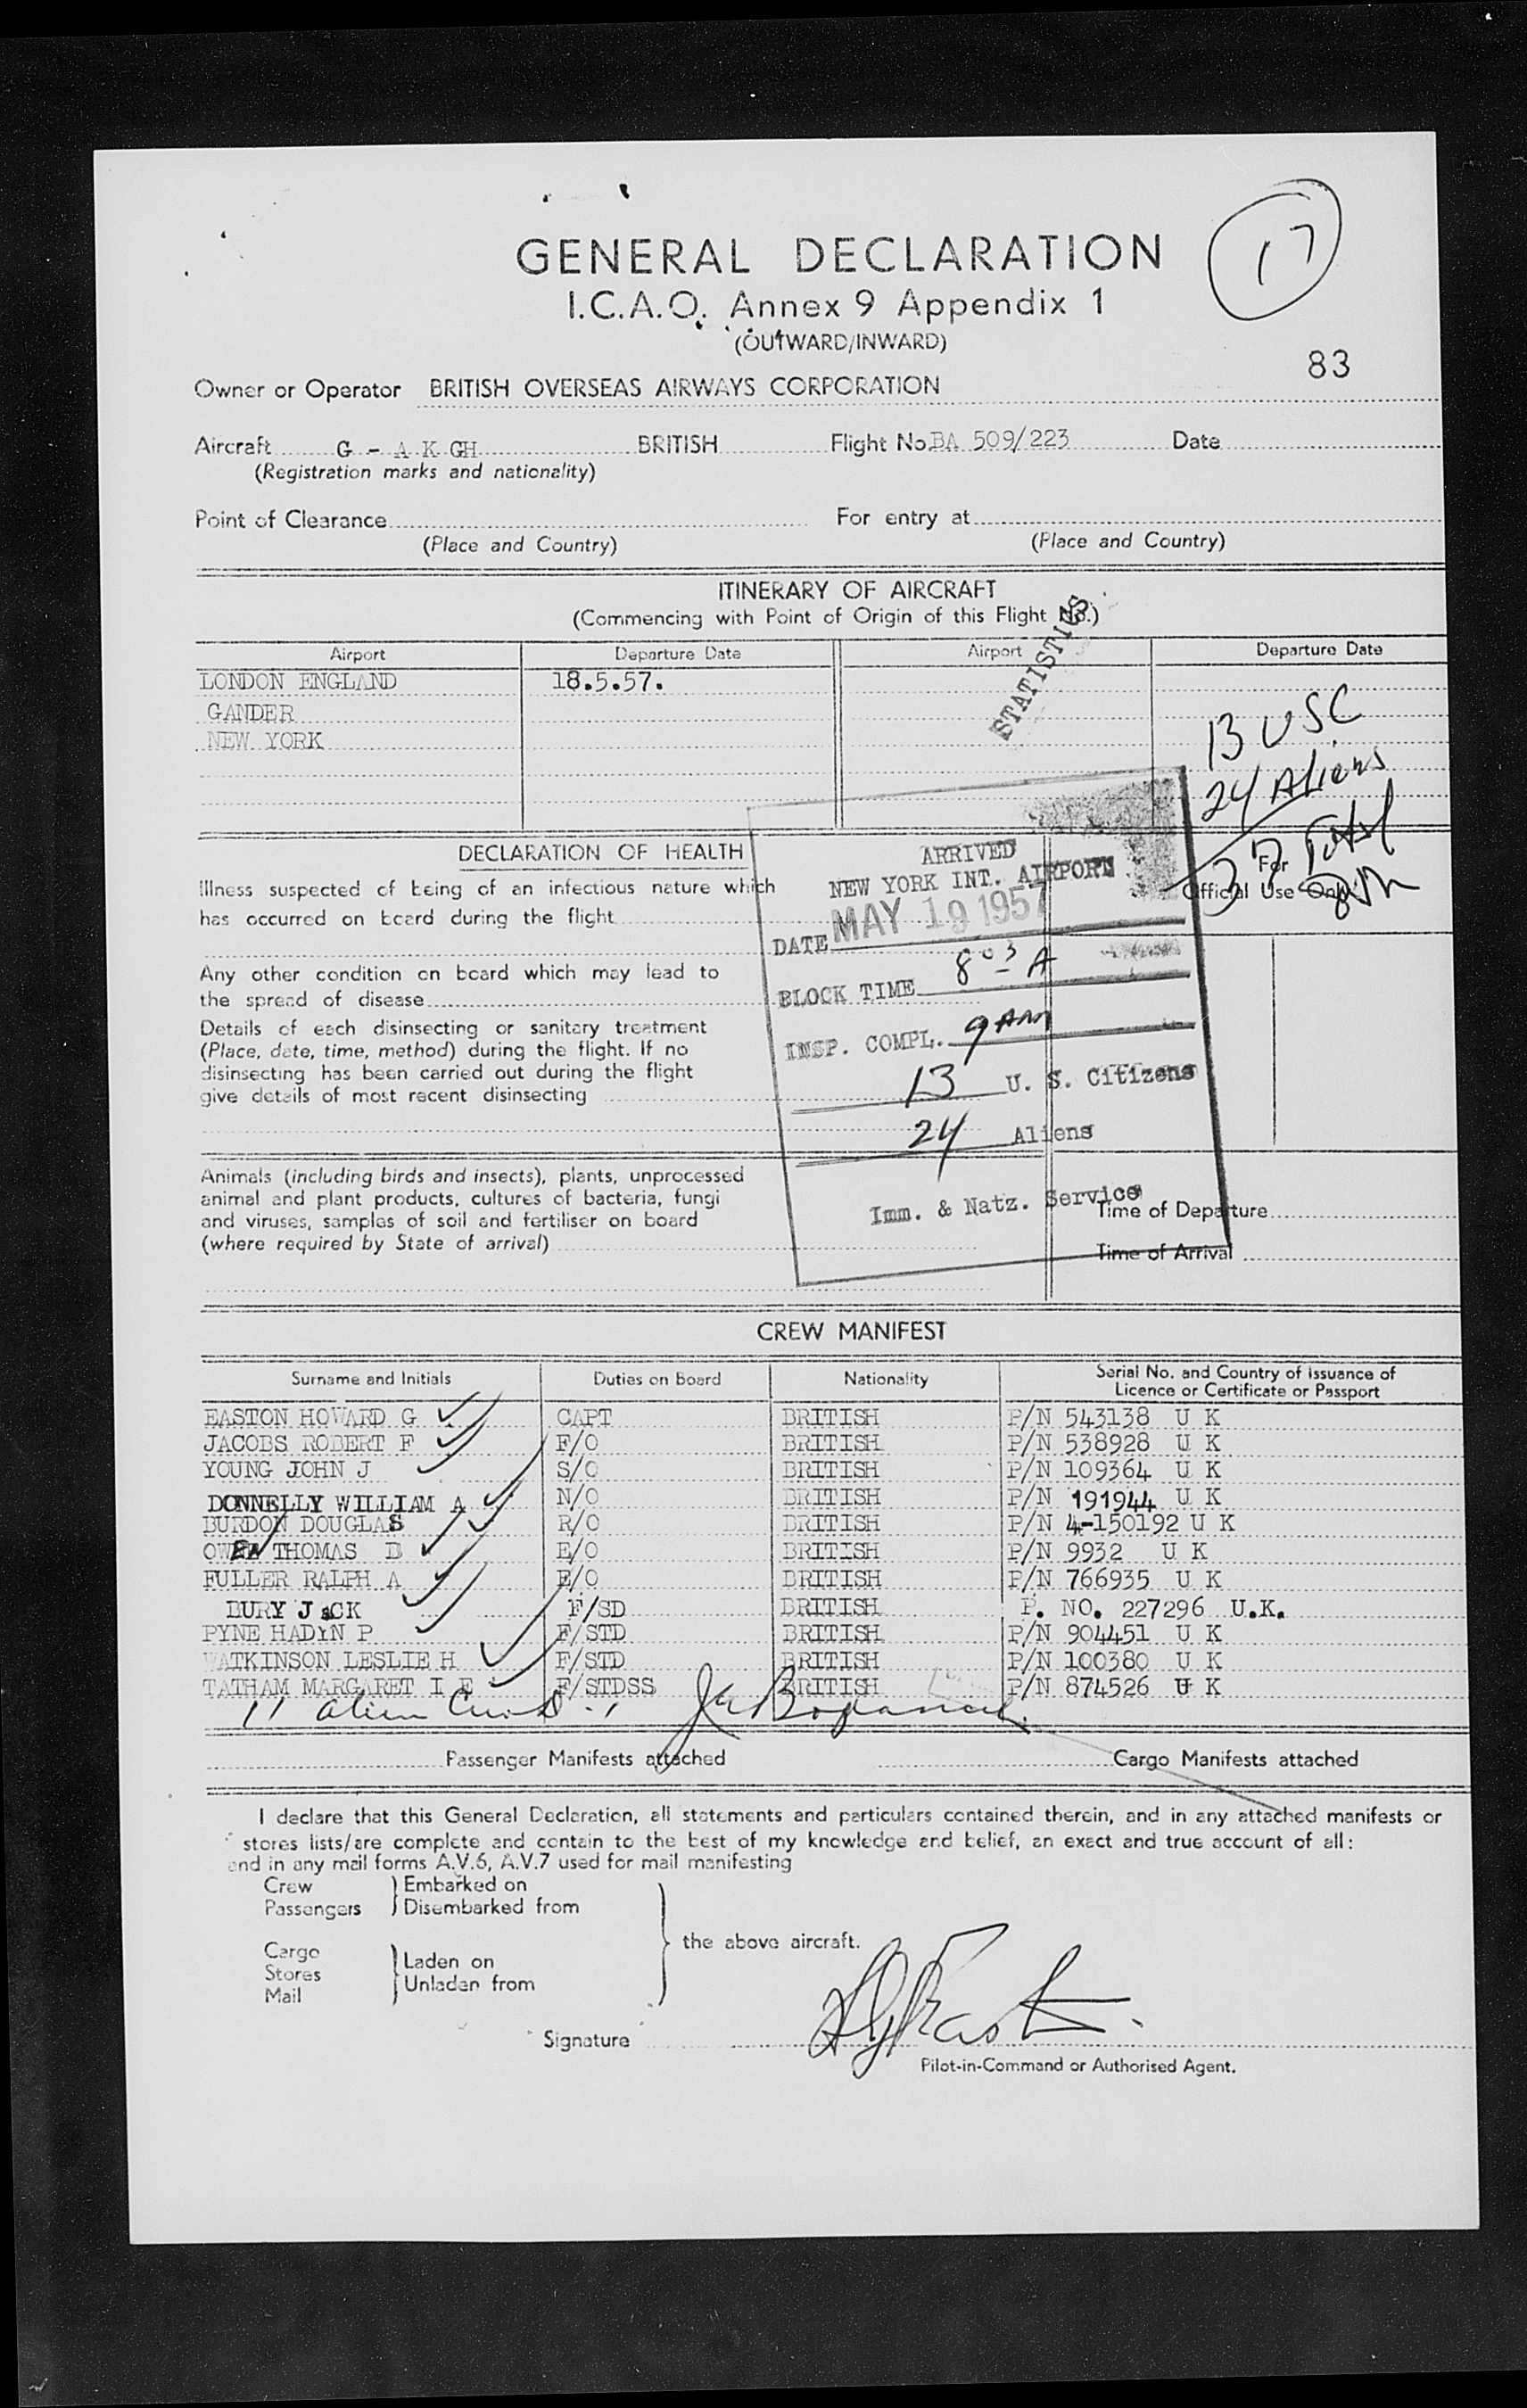 17
GENERAL DECLARATION
I.C.A.O. Annex 9 Appendix 1
(OUTWARD/INWARD)
83
Owner or Operator BRITISH OVERSEAS AIRWAYS CORPORATION
Aircraft G - A K GH BRITISH Flight No. BA 509/223 Date
(Registration marks and nationality)
Point of Clearance For entry at
(Place and Country) (Place and Country)
ITINERARY OF AIRCRAFT
(Commencing with Point of Origin of this Flight No.)
STATISTICS
Airport Departure Date Airport Departure Date
LONDON ENGLAND 18.5.57.
GANDER
NEW YORK
13 USC
24 Aliens
37 Total
DECLARATION OF HEALTH
For
Official Use Only
Illness suspected of being of an infectious nature which
has occurred on board during the flight
Any other condition on board which may lead to
the spread of disease
Details of each disinsecting or sanitary treatment
(Place, date, time, method) during the flight. If no
disinsecting has been carried out during the flight
give details of most recent disinsecting
ARRIVED
NEW YORK INT. AIRPORT
DATE MAY 19 1957
BLOCK TIME 8 03 A
INSP. COMPL. 9 AM
13 U. S. Citizens
24 Aliens
Imm. & Natz. Service
Animals (including birds and insects), plants, unprocessed
animal and plant products, cultures of bacteria, fungi
and viruses, samples of soil and fertiliser on board
(where required by State of arrival)
Time of Departure
Time of Arrival
CREW MANIFEST
Surname and Initials Duties on Board Nationality Serial No. and Country of Issuance of
Licence or Certificate or Passport
EASTON HOWARD G CAPT BRITISH P/N 543138 U K
JACOBS ROBERT F F/O BRITISH P/N 538928 U K
YOUNG JOHN J S/O BRITISH P/N 109364 U K
DONNELLY WILLIAM A N/O BRITISH P/N 191944 U K
BURDON DOUGLAS R/O BRITISH P/N 4-150192 U K
OWEN THOMAS D E/O BRITISH P/N 9932 U K
FULLER RALPH A E/O BRITISH P/N 766935 U K
BURY JACK F/SD BRITISH P. NO. 227296 U.K.
PYNE HADYN P F/STD BRITISH P/N 904451 U K
WATKINSON LESLIE H F/STD BRITISH P/N 100380 U K
TATHAM MARGARET I E F/STDSS BRITISH P/N 874526 U K
11 alien
Passenger Manifests attached Cargo Manifests attached
I declare that this General Declaration, all statements and particulars contained therein, and in any attached manifests or
stores lists/are complete and contain to the best of my knowledge and belief, an exact and true account of all:
and in any mail forms A.V.6, A.V.7 used for mail manifesting
Crew Embarked on
Passengers Disembarked from
the above aircraft.
Cargo
Stores Laden on
Mail Unladen from
Signature
Pilot-in-Command or Authorised Agent.